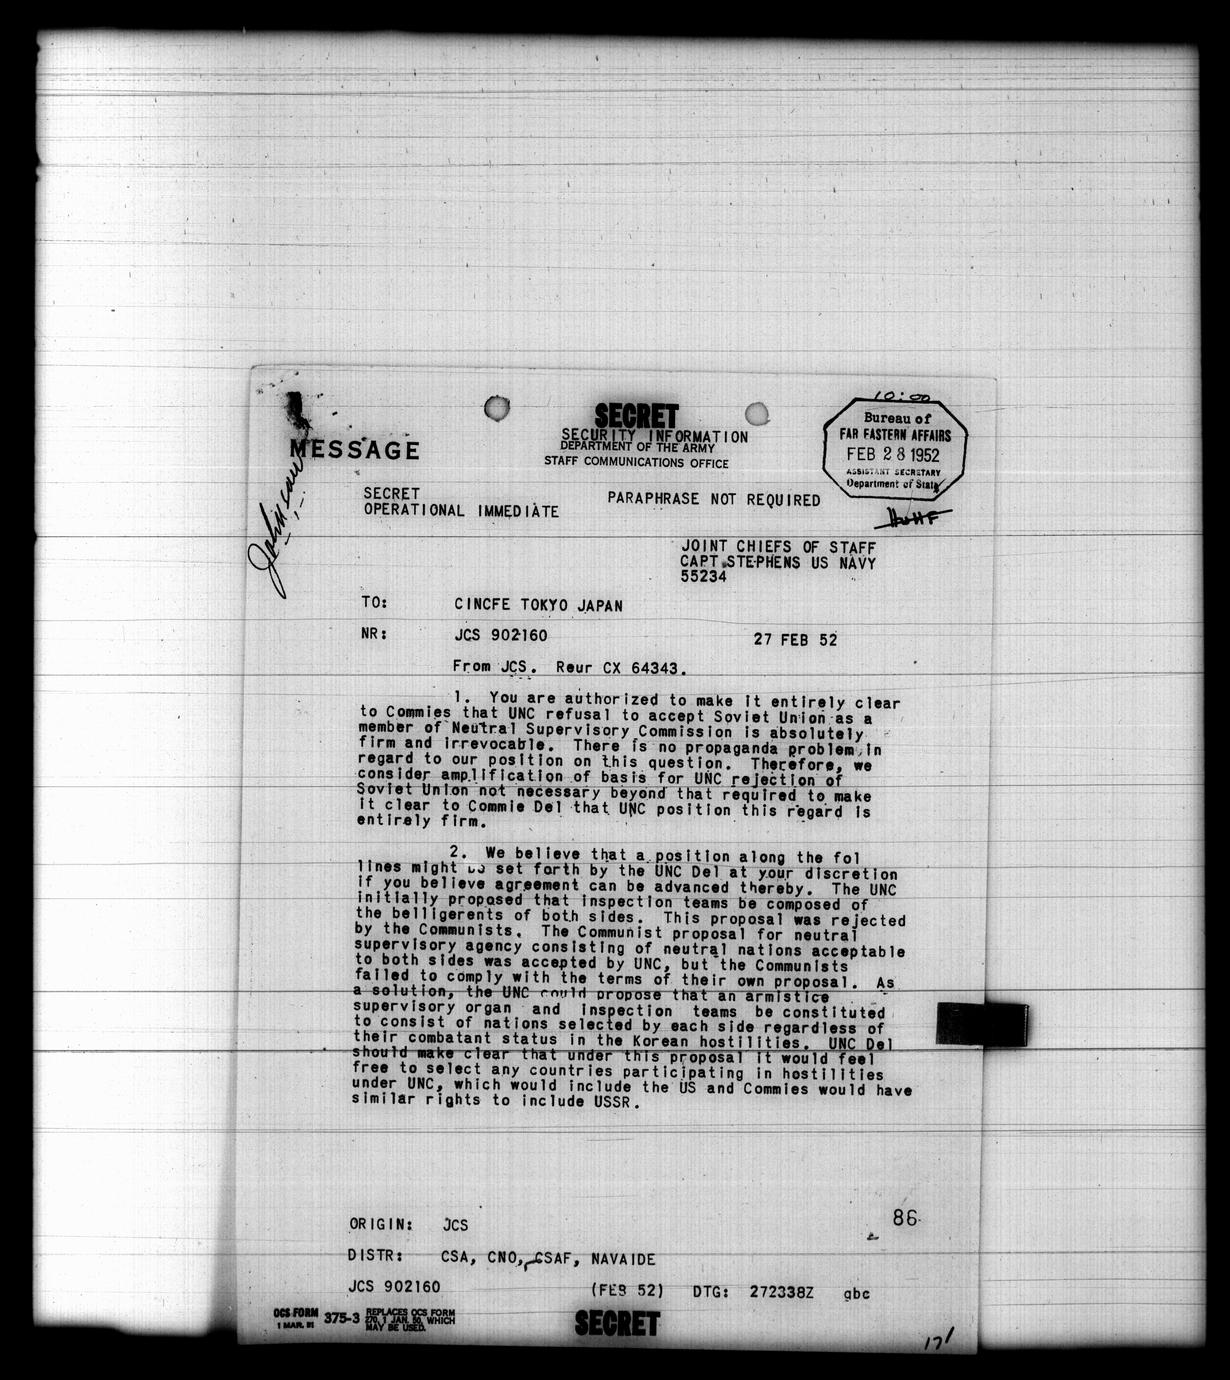 10:00
SECRET
SECURITY INFORMATION
DEPARTMENT OF THE ARMY
STAFF COMMUNICATIONS OFFICE
MESSAGE
Bureau of
FAR EASTERN AFFAIRS
FEB 28 1952
ASSISTANT SECRETARY
Department of State
Johnson
SECRET
OPERATIONAL IMMEDIATE
PARAPHRASE NOT REQUIRED
JOINT CHIEFS OF STAFF
CAPT STEPHENS US NAVY
55234
TO: CINCFE TOKYO JAPAN
NR: JCS 902160 27 FEB 52
From JCS. Reur CX 64343.
1. You are authorized to make it entirely clear
to Commies that UNC refusal to accept Soviet Union as a
member of Neutral Supervisory Commission is absolutely
firm and irrevocable. There is no propaganda problem in
regard to our position on this question. Therefore, we
consider amplification of basis for UNC rejection of
Soviet Union not necessary beyond that required to make
it clear to Commie Del that UNC position this regard is
entirely firm.
2. We believe that a position along the fol
lines might be set forth by the UNC Del at your discretion
if you believe agreement can be advanced thereby. The UNC
initially proposed that inspection teams be composed of
the belligerents of both sides. This proposal was rejected
by the Communists. The Communist proposal for neutral
supervisory agency consisting of neutral nations acceptable
to both sides was accepted by UNC, but the Communists
failed to comply with the terms of their own proposal. As
a solution, the UNC could propose that an armistice
supervisory organ and inspection teams be constituted
to consist of nations selected by each side regardless of
their combatant status in the Korean hostilities. UNC Del
should make clear that under this proposal it would feel
free to select any countries participating in hostilities
under UNC, which would include the US and Commies would have
similar rights to include USSR.
86
ORIGIN: JCS
DISTR: CSA, CNO, CSAF, NAVAIDE
JCS 902160 (FEB 52) DTG: 272338Z gbc
OCS FORM 375-3 REPLACES OCS FORM
1 MAR. 51 270, 1 JAN. 50, WHICH
MAY BE USED.
SECRET